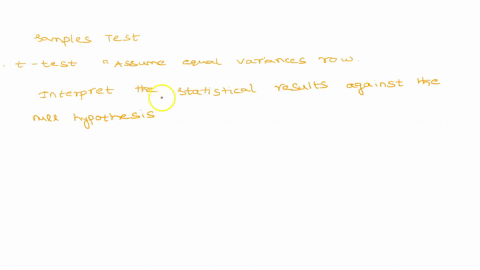 Samples Test
. t-test " Assume equal variances row.
Interpret the statistical results against the
null hypothesis